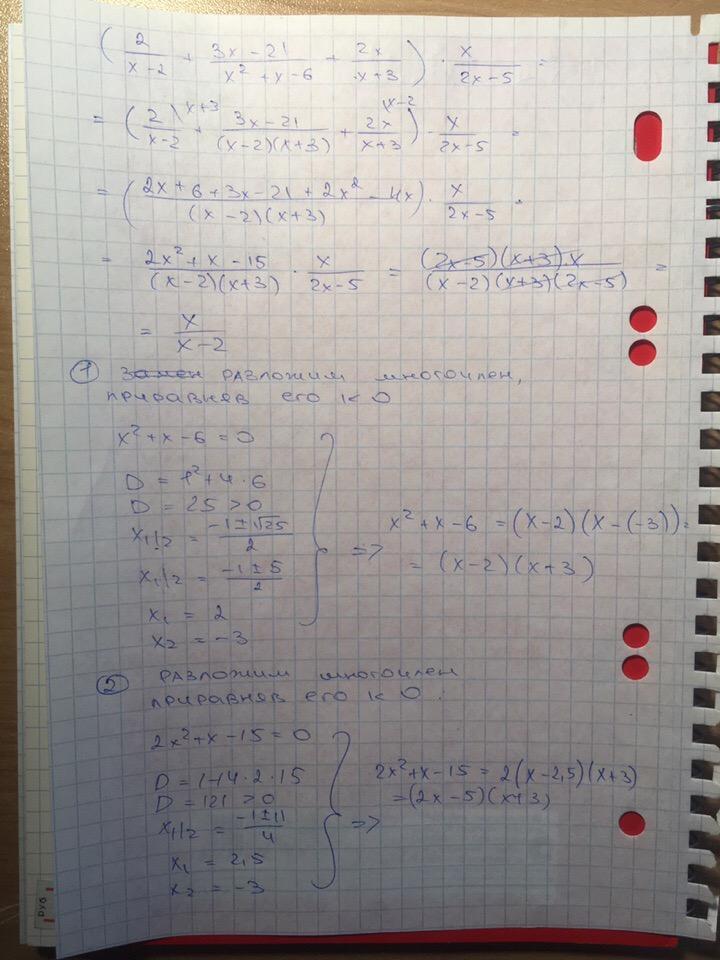 ( 2/(x-2) + (3x-21)/(x²+x-6) + 2x/(x+3) ) · x/(2x-5) =
= ( 2/(x-2) \x+3 + (3x-21)/((x-2)(x+3)) + 2x/(x+3) \x-2 ) · x/(2x-5) =
= ( (2x+6+3x-21+2x²-4x)/((x-2)(x+3)) ) · x/(2x-5) =
= (2x²+x-15)/((x-2)(x+3)) · x/(2x-5) = ((2x-5)(x+3)x)/((x-2)(x+3)(2x-5)) =
= x/(x-2)
① Замен разложим многочлен,
приравняв его к 0
x²+x-6=0
D = 1²+4·6
D = 25 >0
x₁/₂ = (-1±√25)/2
x₁/₂ = (-1±5)/2
x₁ = 2
x₂ = -3
=> x²+x-6 = (x-2)(x-(-3)) =
= (x-2)(x+3)
② разложим многочлен
приравняв его к 0:
2x²+x-15=0
D = 1+4·2·15
D = 121 >0
x₁/₂ = (-1±11)/4
x₁ = 2,5
x₂ = -3
=> 2x²+x-15 = 2(x-2,5)(x+3)
=(2x-5)(x+3)